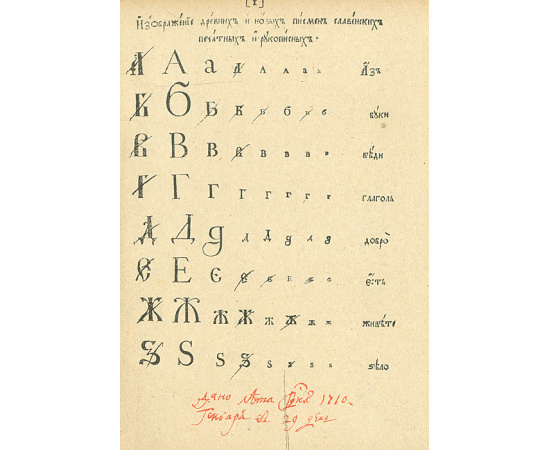 [1]
Изображенїе древнихъ и новыхъ писменъ славенскихъ
печатныхъ и рукописныхъ.
А А а А А а а Азъ
Б Б Б Б Б б Б Б буки
В В В В В в в вѣди
Г Г Г Г Г г г глаголь
Д Д д д д д д добро
Є Е є є є є є є есть
Ж Ж Ж Ж ж Ж ж ж живѣте
Ѕ Ѕ ѕ Ѕ ѕ ѕ ѕ ѕѣло
дано лѣта 1710.
Генваря 29 дня